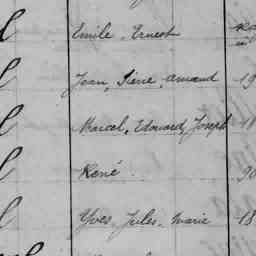 Emile, Ernest
Jean, Pierre, Amand 19
Marcel, Edouard, Joseph 18
René 90
Yves, Jules, Marie 18